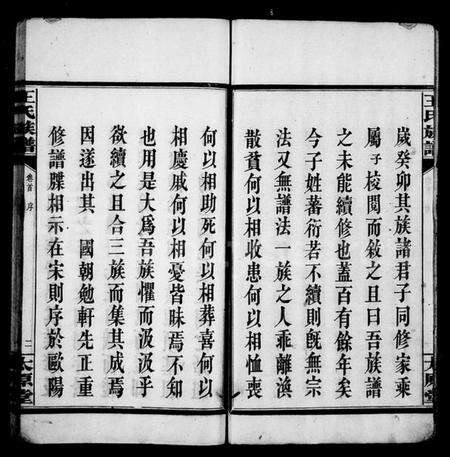 王氏族譜
太原堂
歲癸卯其族諸君子同修家乘
屬予校閱而敘之且曰吾族譜
之未能續修也蓋百有餘年矣
今子姓蕃衍若不續則既無宗
法又無譜法一族之人乖離渙
散貧何以相收患何以相恤喪
何以相助死何以相葬喜何以
相慶戚何以相憂皆昧焉不知
也用是大爲吾族懼而汲汲乎
欲續之且合三族而集其成焉
因遂出其　國朝勉軒先正重
修譜牒相示在宋則序於歐陽
王氏族譜
卷首　序
二
太原堂